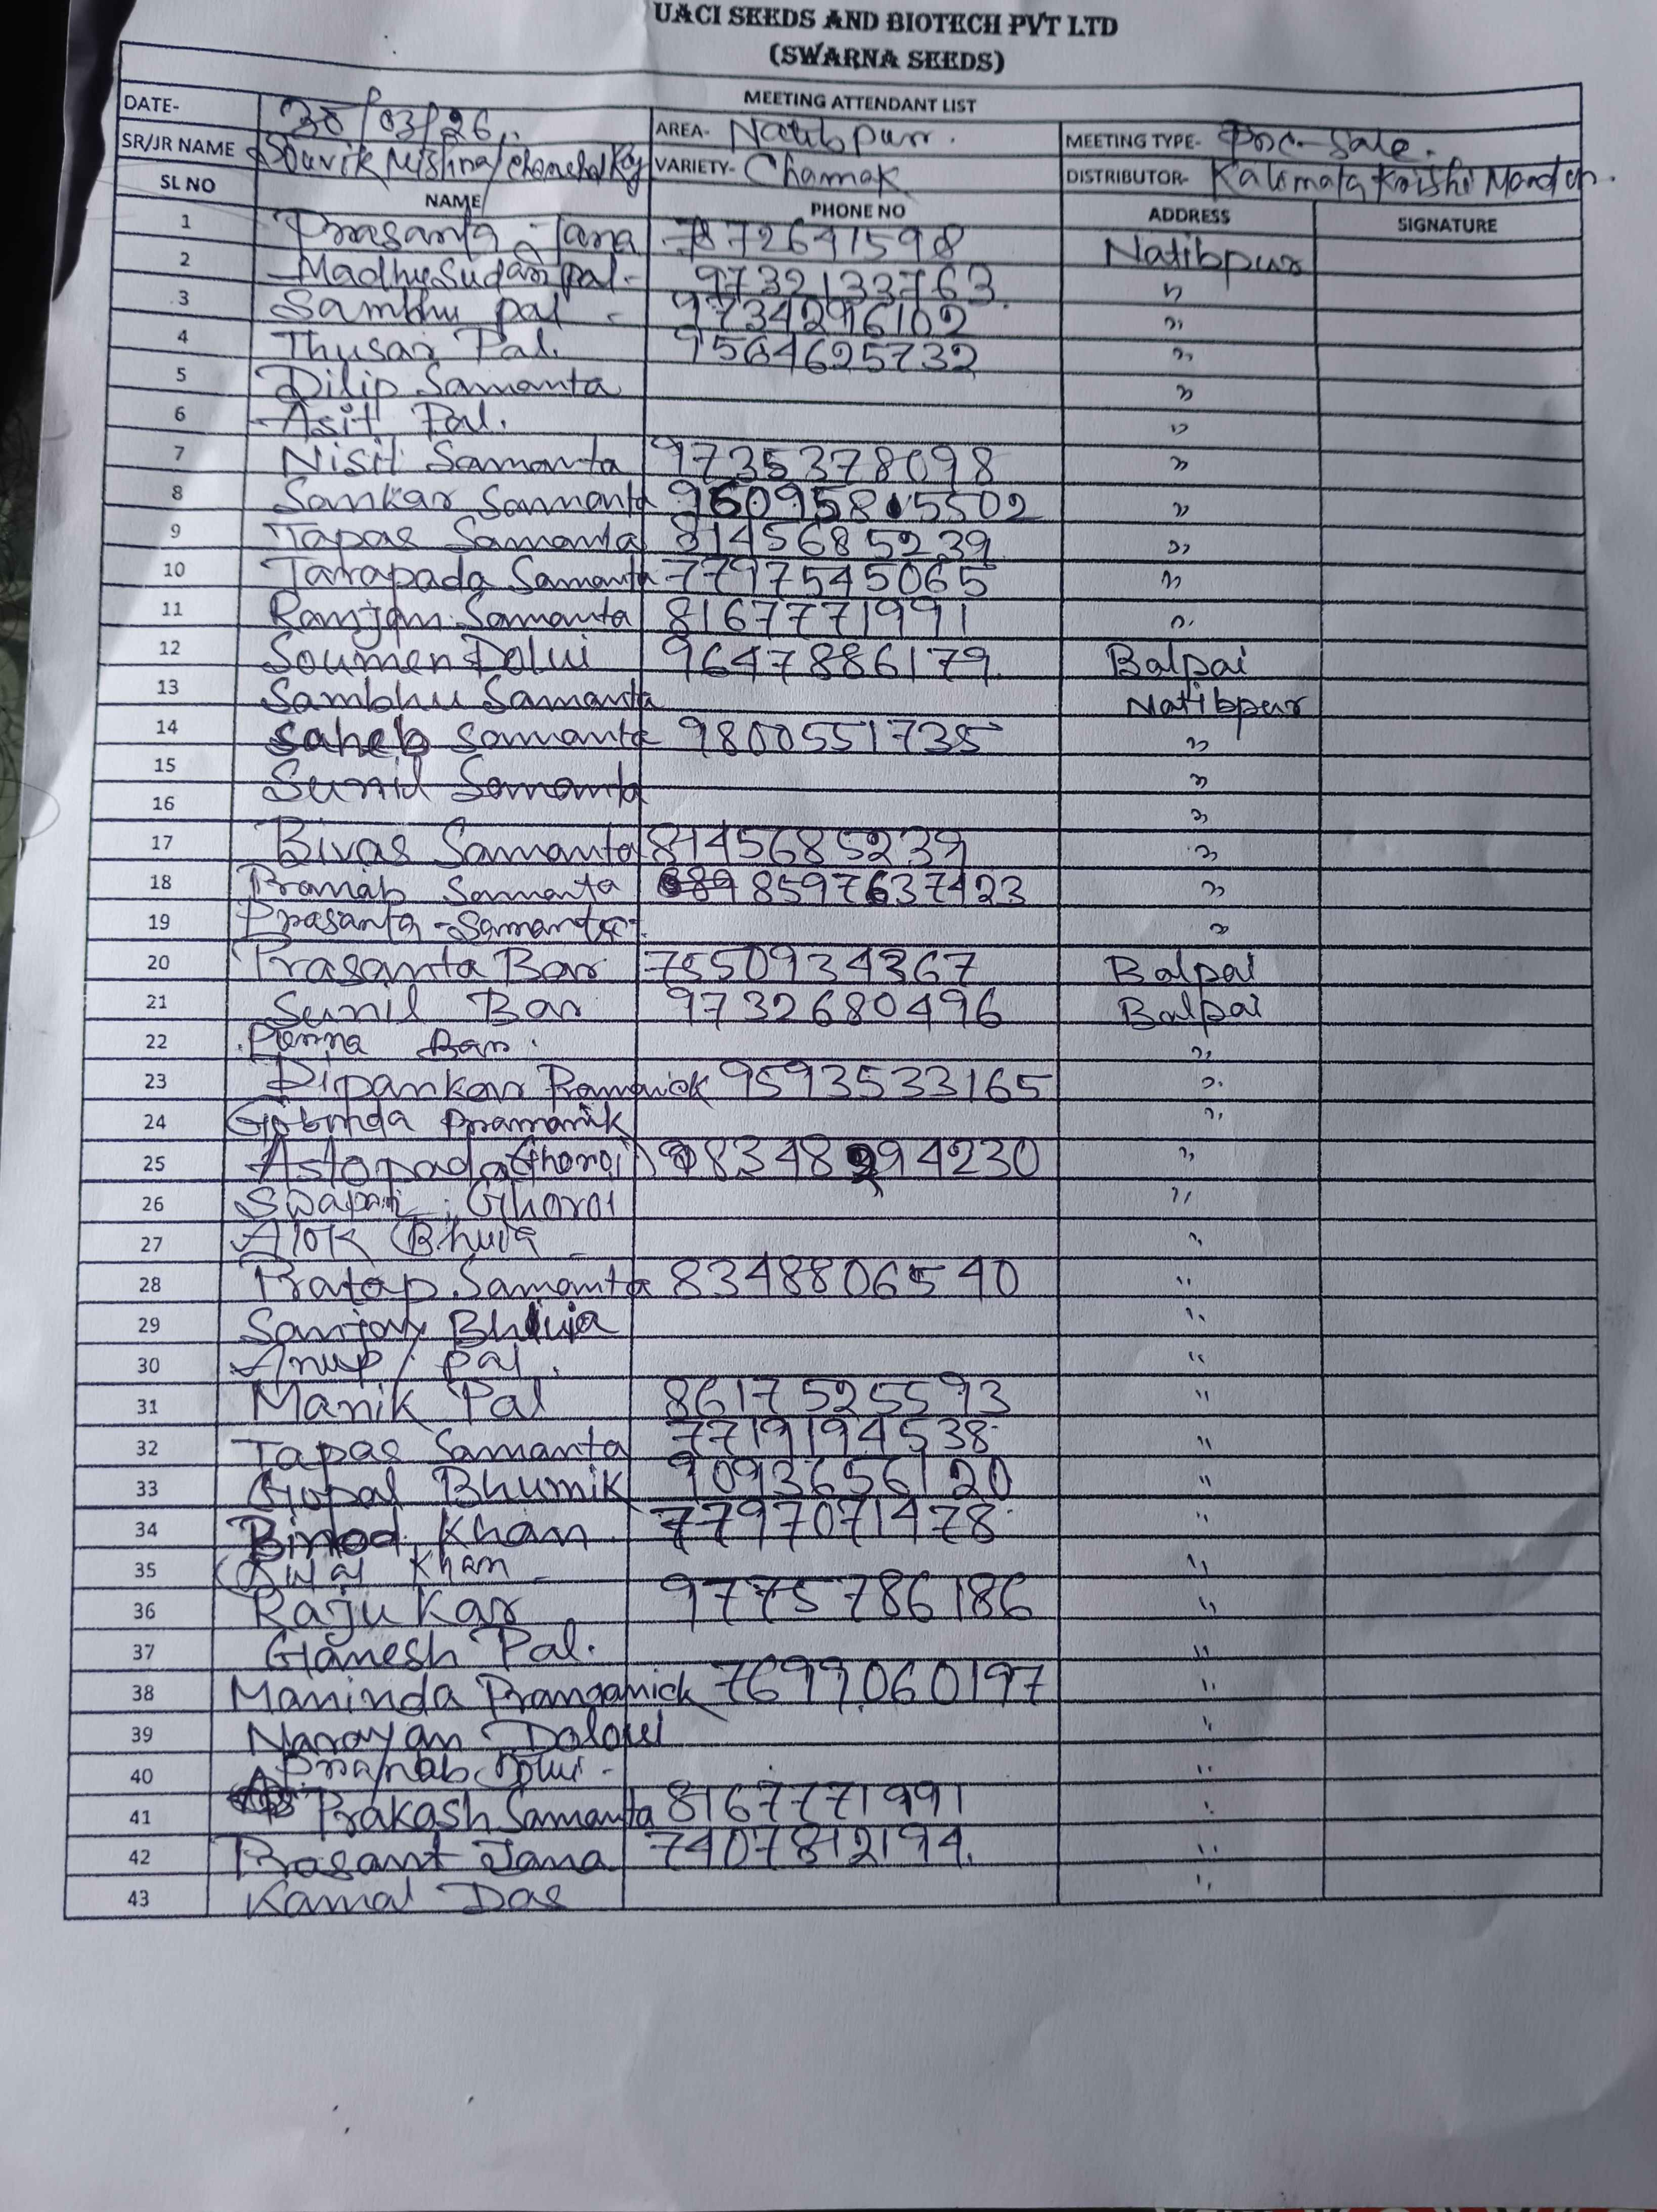 UACI SEEDS AND BIOTECH PVT LTD
(SWARNA SEEDS)
MEETING ATTENDANT LIST
DATE- 30/03/26 AREA- Natibpur. MEETING TYPE- Pre-Sale.
SR/JR NAME Souvik Mishra/Chanchal Roy VARIETY- Chamak DISTRIBUTOR- Kalimata Krishi Mandir.
SL NO NAME PHONE NO ADDRESS SIGNATURE
1 Prasanta Jana 872641598 Natibpur
2 Madhusudan Pal- 9732133763. "
3 Sambhu pal - 9734296102 "
4 Thusar Pal. 9564625732 "
5 Dilip Samanta "
6 Asit Pal. "
7 Nisit Samanta 9735378098 "
8 Sankar Samanta "
9 Tapas Samanta 8145685239 "
10 Tarapada Samanta 7797545065 "
11 Ranjan Samanta 8167771991 "
12 Soumen Dolui 9647886179. Balpai
13 Sambhu Samanta Natibpur
14 Saheb Samanta 9800551735 "
15 Samanta "
16 "
17 Bivas Samanta 8145685239 "
18 Pranab Samanta 8597637423 "
19 Prasanta - Samanta. "
20 Prasanta Bar 7550934367 Balpai
21 Sunil Bar 9732680496 Balpai
22 Bar. "
23 Dipankar Pramanick 9593533165 "
24 Gobinda Pramanik "
25 Astopada Ghoroi "
26 Swapan Ghoroi "
27 Alok Bhuia "
28 Pratap Samanta 8348806540 "
29 Sanjay Bhuia "
30 Anup pal. "
31 Manik Pal 8617525593 "
32 Tapas Samanta 7719194538 "
33 Gopal Bhumik 9093656120 "
34 Binod Khan 7797071478 "
35 Khan "
36 Raju Kar 9775786186 "
37 Ganesh Pal. "
38 Maninda Pramganick 7699060197 "
39 Narayan Doloui "
40 Pranab Dolui - "
41 Prakash Samanta 8167771991 "
42 Prasant Jana 7407812194. "
43 Kamal Das "